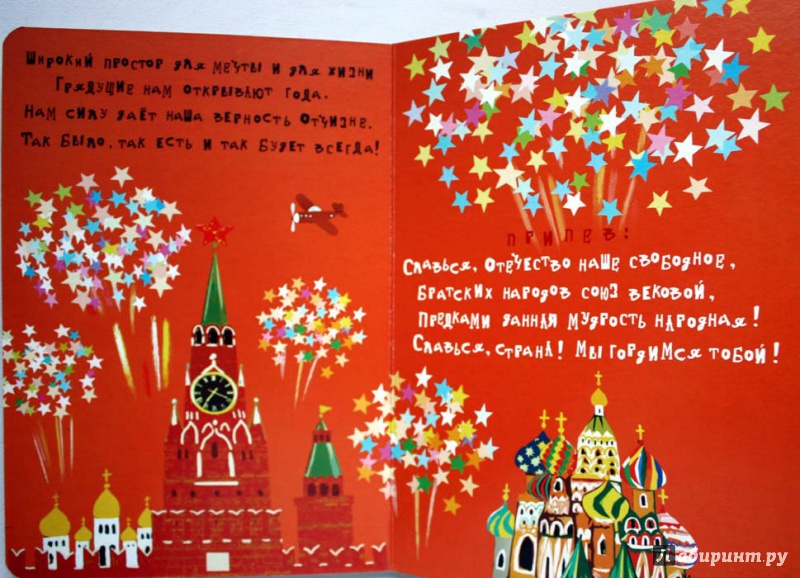 Широкий простор для мечты и для жизни
Грядущие нам открывают года.
Нам силу даёт наша верность Отчизне.
Так было, так есть и так будет всегда!
Припев:
Славься, Отечество наше свободное,
Братских народов союз вековой,
Предками данная мудрость народная!
Славься, страна! Мы гордимся тобой!
Лабиринт.ру